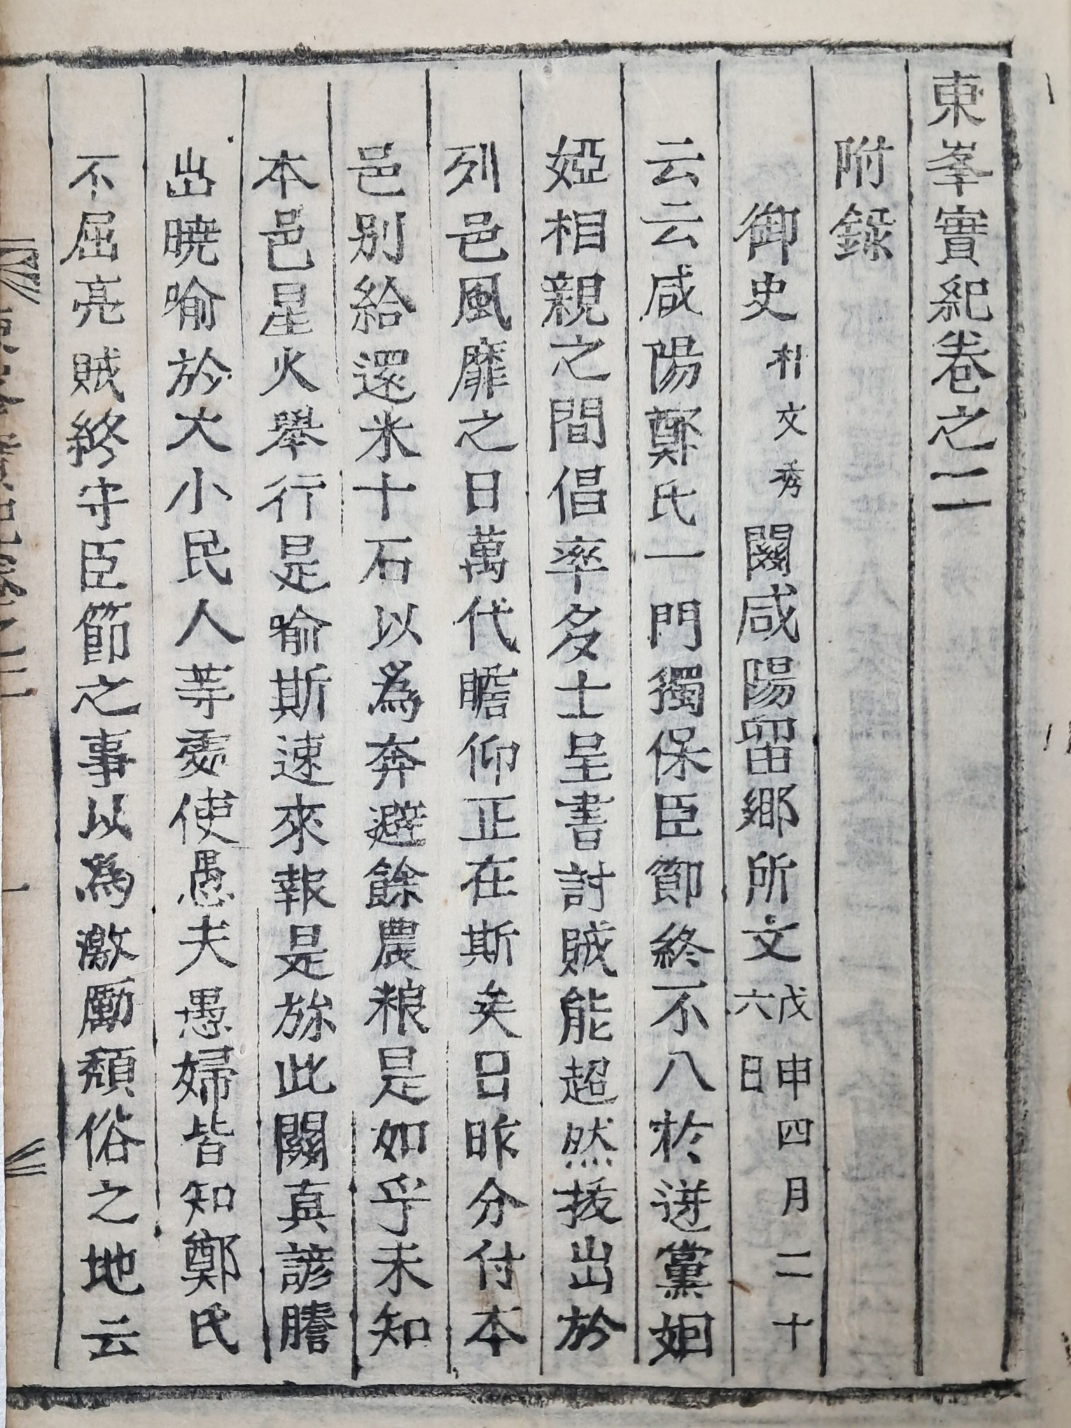 東峯實紀卷之二
附錄
御史朴文秀關咸陽留鄉所文戊申四月二十六日
云云咸陽鄭氏一門獨保臣節終不入於逆黨姻
婭相親之間倡率多士呈書討賊能超然拔出於
列邑風靡之日萬代瞻仰正在斯矣日昨分付本
邑別給還米十石以爲奔避餘農粮是如乎未知
本邑星火舉行是喩斯速來報是旀此關真諺謄
出曉喻於大小民人等處使愚夫愚婦皆知鄭氏
不屈亮賊終守臣節之事以爲激勵頹俗之地云